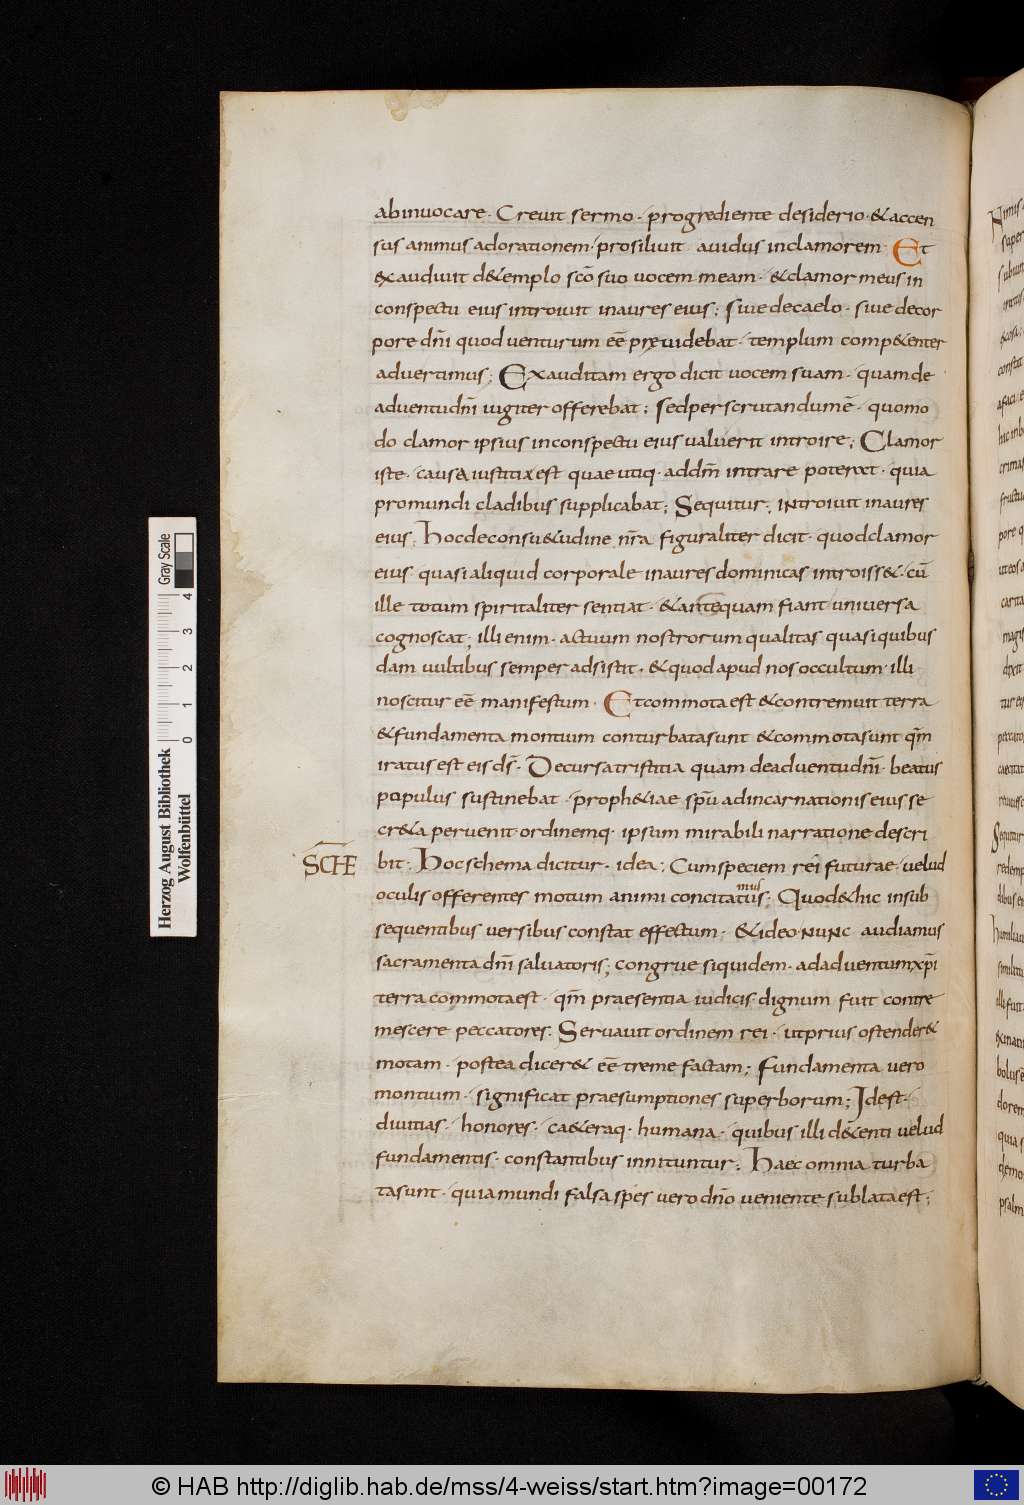 abinuocare · Creuit sermo · progrediente desiderio · & accen
sus animus adorationem · prosiluit auidus inclamorem · Et
exaudiuit d&emplo sc̄o suo uocem meam · & clamor meus in
conspectu eius introiuit inaures eius ; siue decaelo · siue decor
pore dn̄i quod uenturum eē praeuidebat · templum comp&enter
aduertimus ; Exauditam ergo dicit uocem suam · quam de
aduentu dn̄i iugiter offerebat ; sed perscrutandum ē · quomo
do clamor ipsius inconspectu eius ualuerit introire ; Clamor
iste · causa iustitiae est quae utiq· ad dn̄m intrare potuisset · quia
pro mundi cladibus supplicabat ; Sequitur ; introiuit inaures
eius ; hoc deconsu&udine nr̄a figuraliter dicit · quod clamor
eius · quasi aliquid corporale inaures dominicas introiss& · cū
ille totum spiritaliter sentiat · & antequam fiant uniuersa
cognoscat ; illi enim · actuum nostrorum qualitas quasi quibus
dam uultibus semper adsistit · & quod apud nos occultum illi
noscitur eē manifestum · Et commota est & contremuit terra
& fundamenta montium conturbata sunt & commota sunt qm̄
iratus est eis ds̄ · Decursa tristitia quam deaduentu dn̄i · beatus
populus sustinebat · proph&iae sp̄u ad incarnationis eius se
cr&a peruenit · ordinemq· ipsum mirabili narratione descri
SCHE bit · hoc schema dicitur · idea ; Cum speciem rei futurae · uelud
oculis offerentes motum animi concitamus ; Quod & hic insub
sequentibus uersibus constat effectum · & ideo nunc audiamus
sacramenta dn̄i saluatoris ; congrue siquidem · ad aduentum xp̄i
terra commota est · qm̄ praesentia iudicis dignum fuit contre
mescere peccatores · Seruauit ordinem rei · ut prius ostender&
motam · postea dicer& eē tremefactam ; Fundamenta uero
montium · significat praesumptiones superborum ; Id est ·
diuitias · honores · ca&eraq· humana · quibus illi d&enti uelud
fundamentis · constantibus innituntur ; haec omnia turba
ta sunt · quia mundi falsa spes uero dn̄o ueniente sublata est ;
Herzog August Bibliothek
Wolfenbüttel
0 1 2 3 4
Gray Scale
© HAB http://diglib.hab.de/mss/4-weiss/start.htm?image=00172